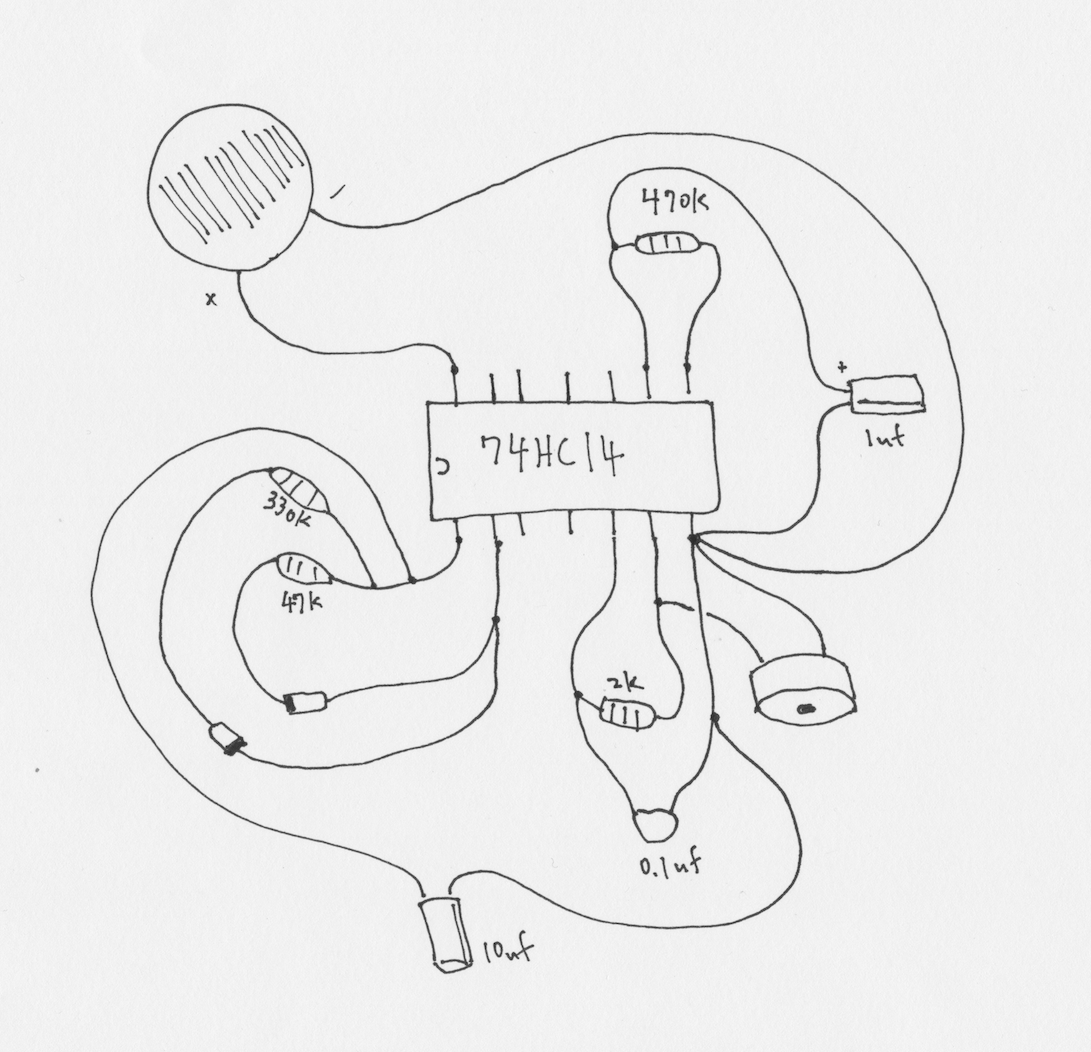 470k
x
+
74HC14
1uf
330k
47k
2k
0.1uf
10uf